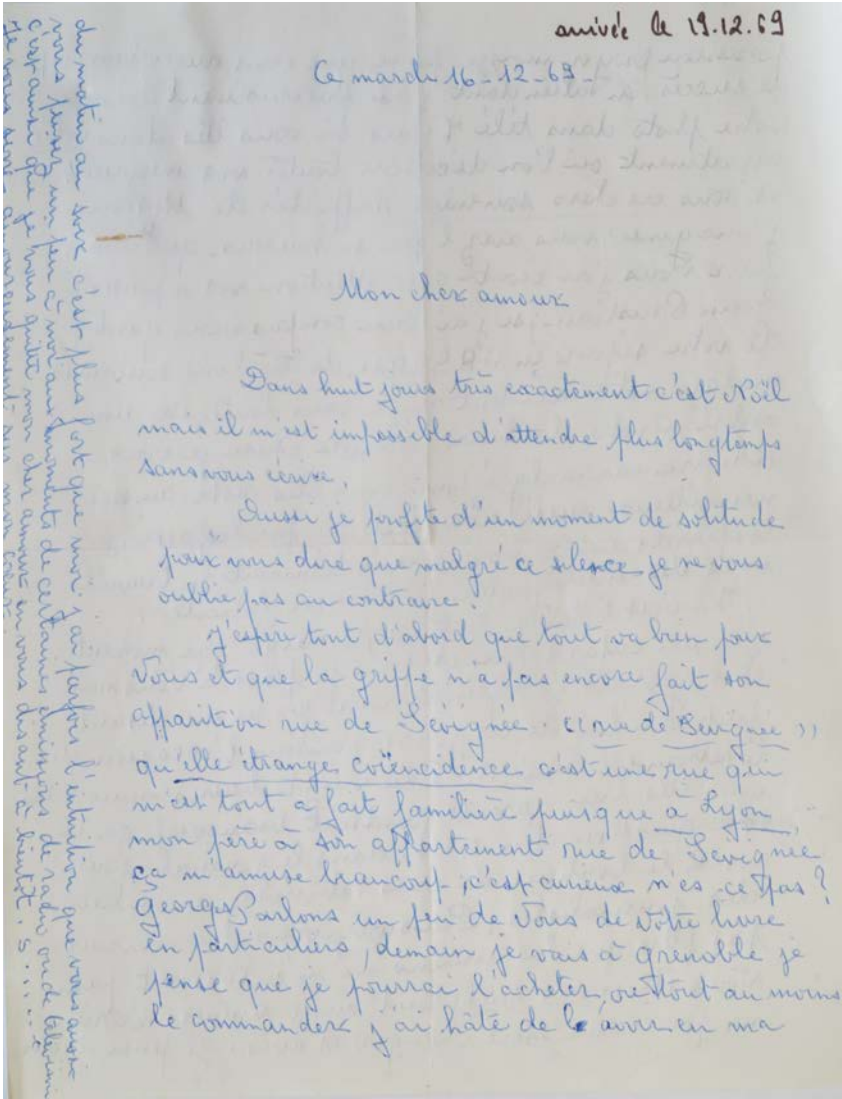 arrivée le 19.12.69
Ce mardi 16-12-69-
Mon cher amour
Dans huit jours très exactement c'est Noël
mais il m'est impossible d'attendre plus longtemps
sans vous écrire.
Aussi je profite d'un moment de solitude
pour vous dire que malgré ce silence je ne vous
oublie pas au contraire.
J'espère tout d'abord que tout va bien pour
vous et que la griffe n'a pas encore fait son
apparition rue de Sévignée. "rue de Sevignee"
qu'elle étrange coïencidence c'est une rue qui
m'est tout a fait familière puisque à Lyon
mon père à son appartement rue de Sevignée
ça m'amuse beaucoup, c'est curieux n'es ce pas ?
Georges Parlons un peu de vous de votre livre
en particuliers, demain je vais à Grenoble je
pense que je pourrai l'acheter, ou tout au moins
le commander j'ai hâte de l'avoir en ma
du matin au soir c'est plus fort que moi. J'ai parfois l'intuition que vous aussi
vous pensez un peu à moi aux moments de certaines émissions de radio ou de télévision
c'est ainsi que je vous quitte mon cher amour en vous disant à bientôt. S......
Je vous serre sur mon coeur